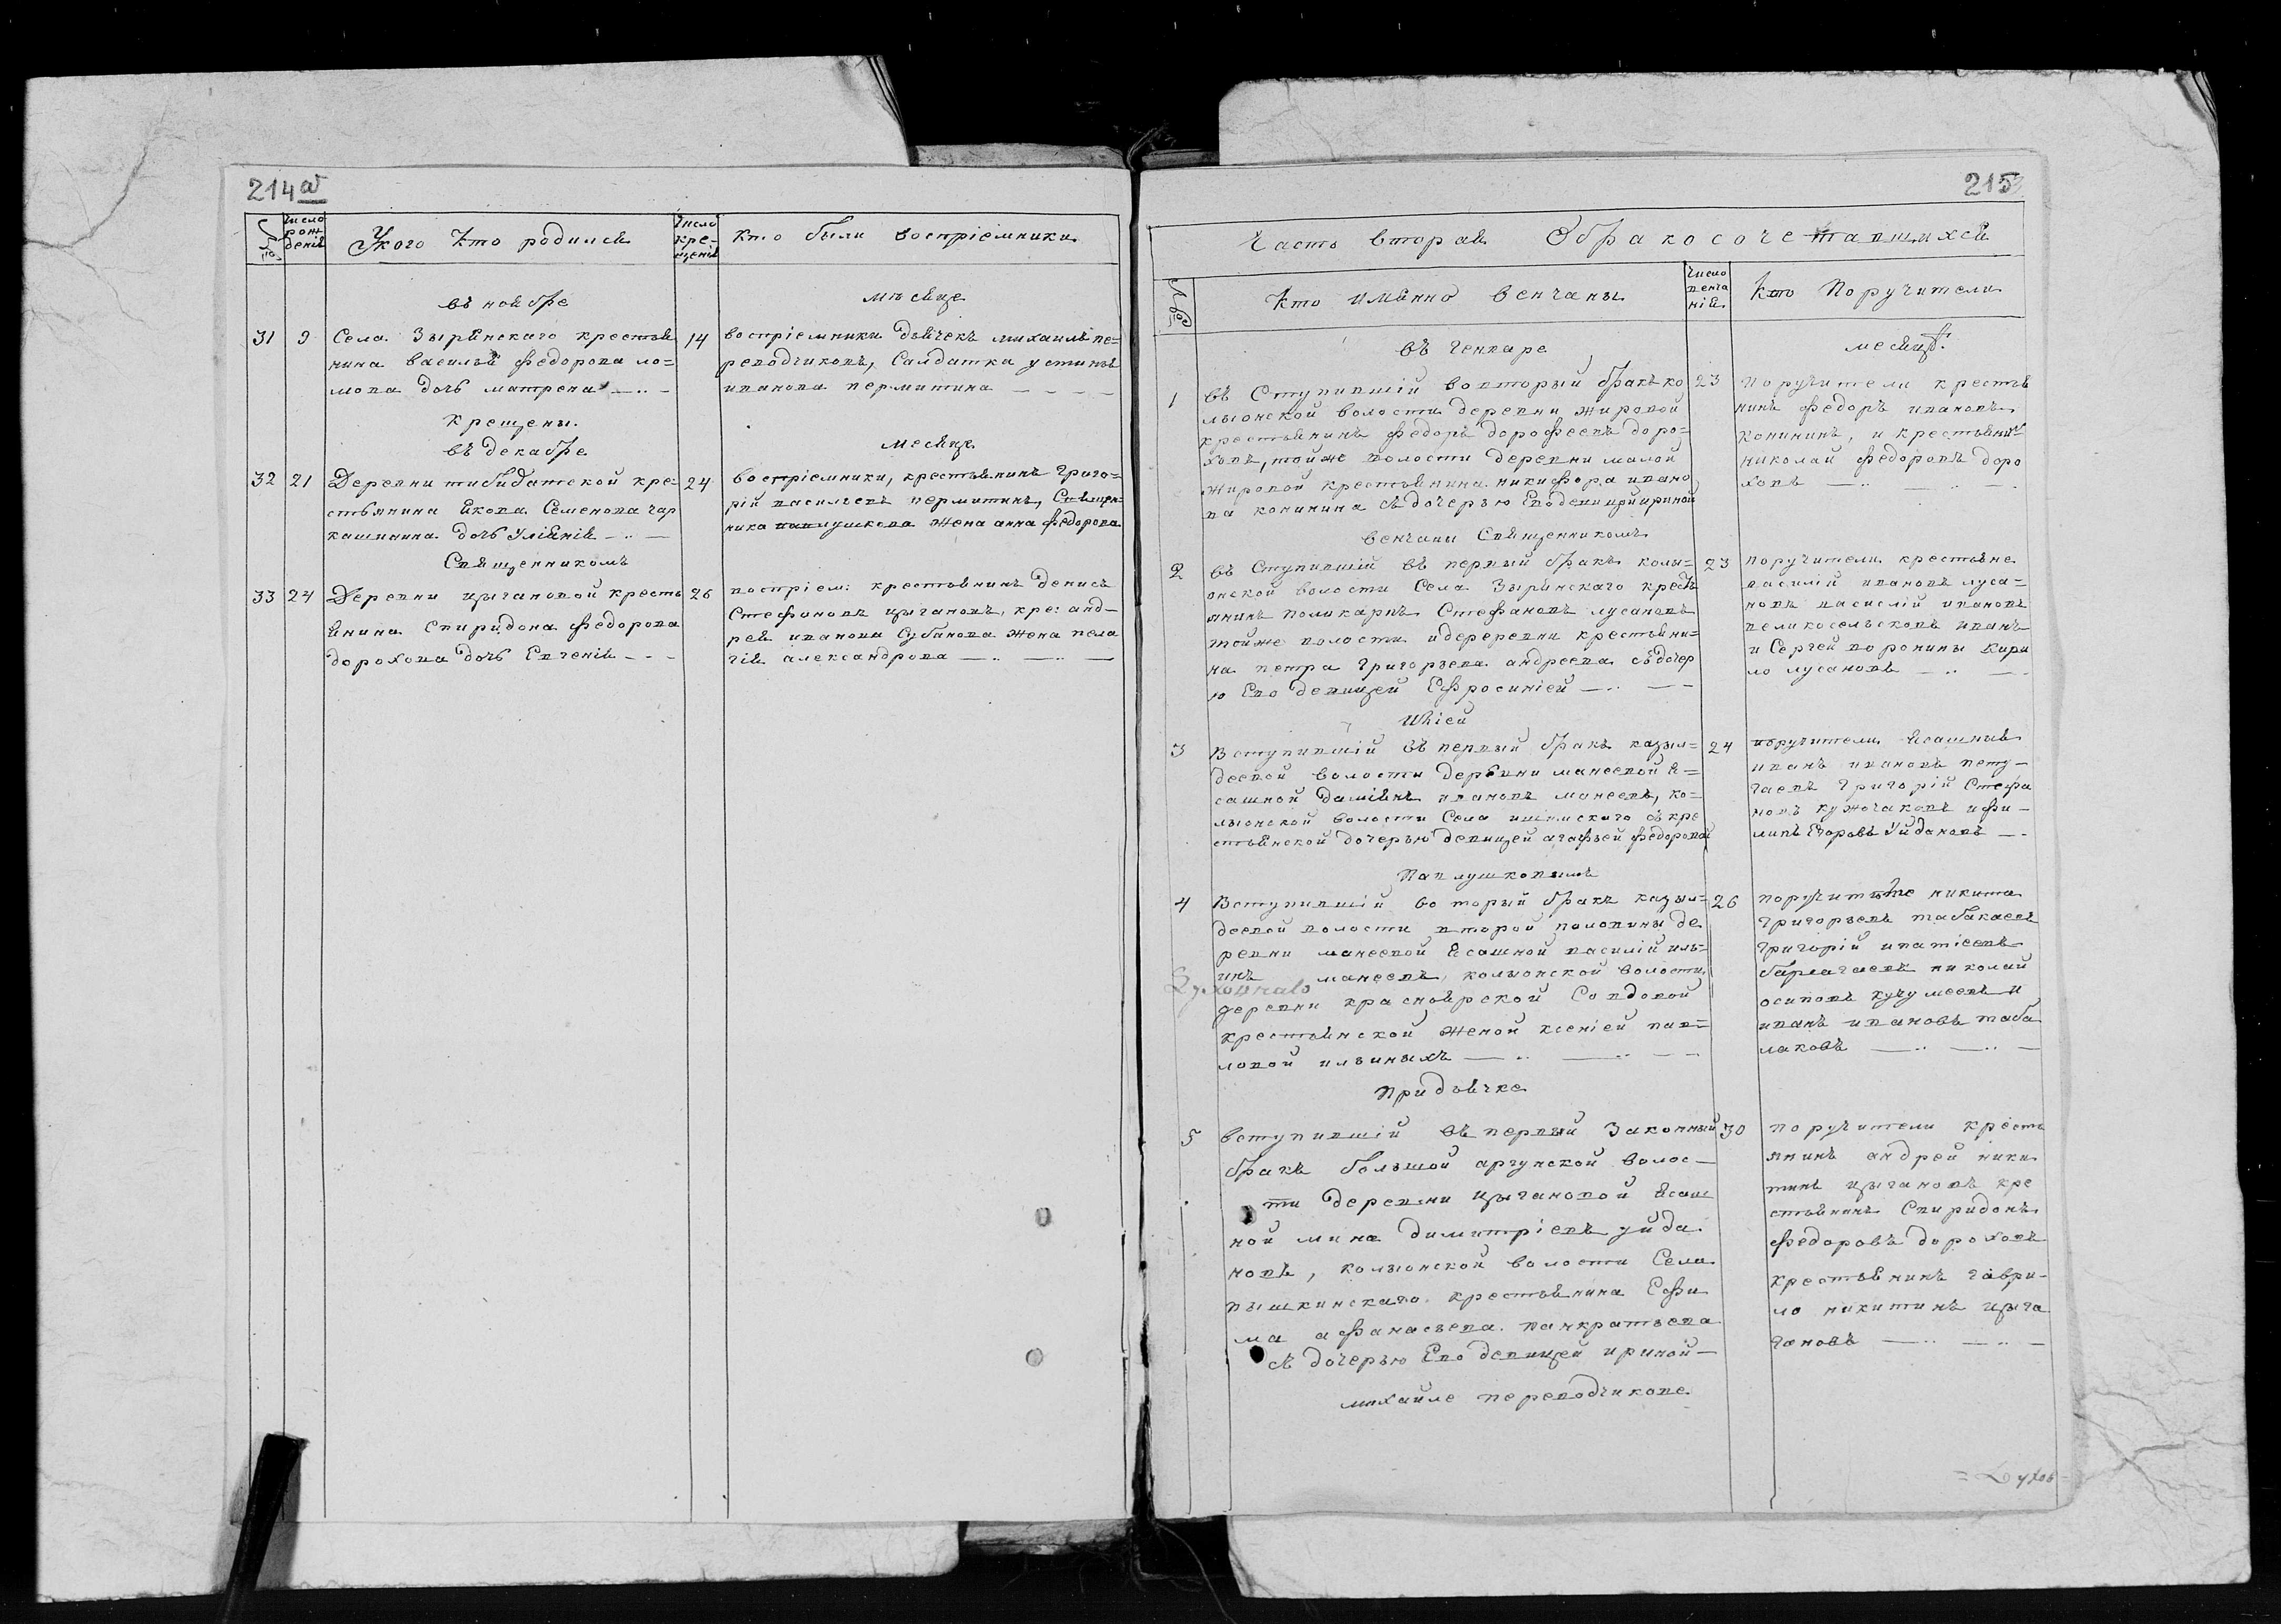 214 об
№
Число
рож
денія
У кого Кто родился
Число
кре-
щенія
Кто были воспріемники
въ ноябре
мѣсяце
31
9
14
Села Зырянскаго крестья
нина василья федорова ло=
мова дочь матрена
воспріемники дьячекъ михаилъ пе=
реводчиковъ, Салдатка устинья
иванова пермитина
крещены.
въ декабре
месяце
32
21
24
Деревни тибидатской кре=
стьянина якова Семенова чар
кашинина дочь Уліянія
воспріемники, крестьянинъ Григо=
рій васильевъ пермитинъ, Священ=
ника павлушкова жена анна федорова
Священникомъ
33
24
26
Деревни цыгановой кресть
янина Спиридона федорова
дорохова дочь Евгенія
воспріем: крестьянинъ денисъ
Стефановъ цыгановъ, кре: анд-
рея иванова Субанова жена пела
гія александрова
215
Часть вторая О бракосочетавшихся
№
Кто имянно венчаны
Число
венча
нія
Кто Поручители
въ Генваре
месяце
1
въ Ступившій во вторый бракъ ко
лыонской волости деревни жировой
крестьянинъ федоръ дорофеевъ доро=
ховъ, тойже волости деревни малой
жировой крестьянина никифора ивано
ва конинина съ дочерью Его девицей ириной
23
поручители крестья
нинъ федоръ ивановъ
конининъ, и крестьянинъ
николай федоровъ доро
ховъ
венчаны Священникомъ
2
въ Ступившій въ первый бракъ колы=
онской волости Села Зырянскаго кресть
янинъ поликарпъ Стефановъ лусановъ
тойже волости идереревни крестьяни=
на петра григорьева андреева съ дочер
ю Его девицей Ефросиніей
23
поручители крестьяне
василій ивановъ луса=
новъ василій ивановъ
великосельсковъ иванъ
и Сергей воронины кири
ло лусановъ
Иліей
3
Вступившій въ первый бракъ казыл=
деевой волости деревни манеевой я=
сашной даміянъ ивановъ манеевъ, ко=
лыонской волости Села ишимскаго съ кре
стьянской дочерью девицей агафьей федоровой
24
поручители ясашныя
иванъ ивановъ пету-
гаевъ Григорій Стефа
новъ кужогаковъ ифи-
липъ Егоровъ Уйдановъ
Павлушковымъ
4
Вступившій во торый бракъ казыл=
деевой волости второй половины де
ревни манеевой ясашной василій иль=
инъ манеевъ, колыонской волости
деревни красноярской Со вдовой
крестьянской женой ксеніей пав=
ловой ильиныхъ
26
никита
григорьевъ табакаевъ
григорій ипатіевъ
николай
осиповъ кучумеевъ и
иванъ ивановъ таба
лаковъ
При дьячке
5
вступившій въ первый Законный
бракъ большой аргунской волос-
ти деревни цыгановой ясаш
ной мина димитріевъ уйда
новъ, колыонской волости Села
пышкинскаго крестьянина Ефи
ма афанасьева панкратьева
съ дочерью Его девицей ириной-
30
поручители кресть
янинъ андрей ники
тинъ цыгановъ кре
стьянинъ Спиридонъ
федоровъ дороховъ
крестьянинъ гаври-
ло никитинъ цыга
гановъ
михайле переводчикове